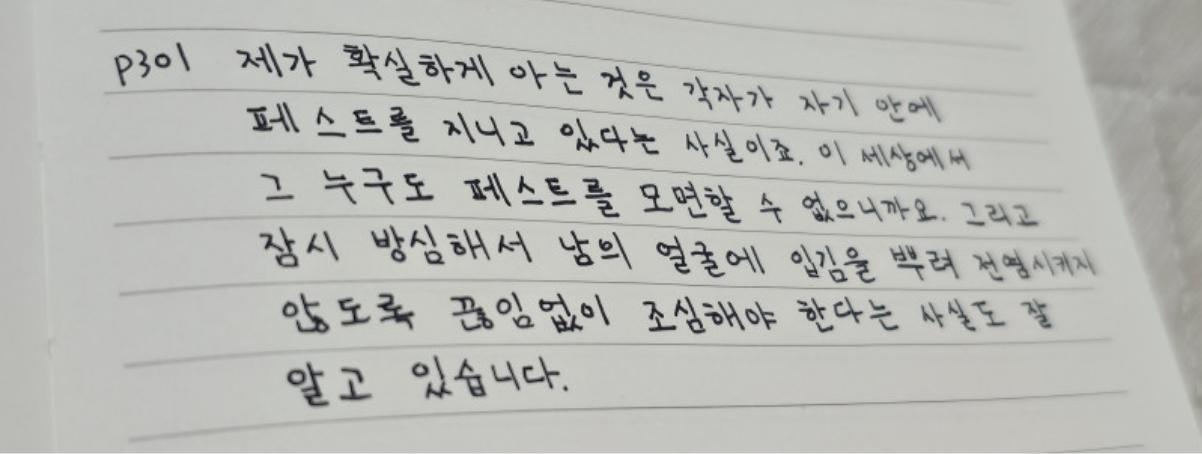 p301 제가 확실하게 아는 것은 각자가 자기 안에
페스트를 지니고 있다는 사실이죠. 이 세상에서
그 누구도 페스트를 모면할 수 없으니까요. 그리고
잠시 방심해서 남의 얼굴에 입김을 뿌려 전염시키지
않도록 끊임없이 조심해야 한다는 사실도 잘
알고 있습니다.